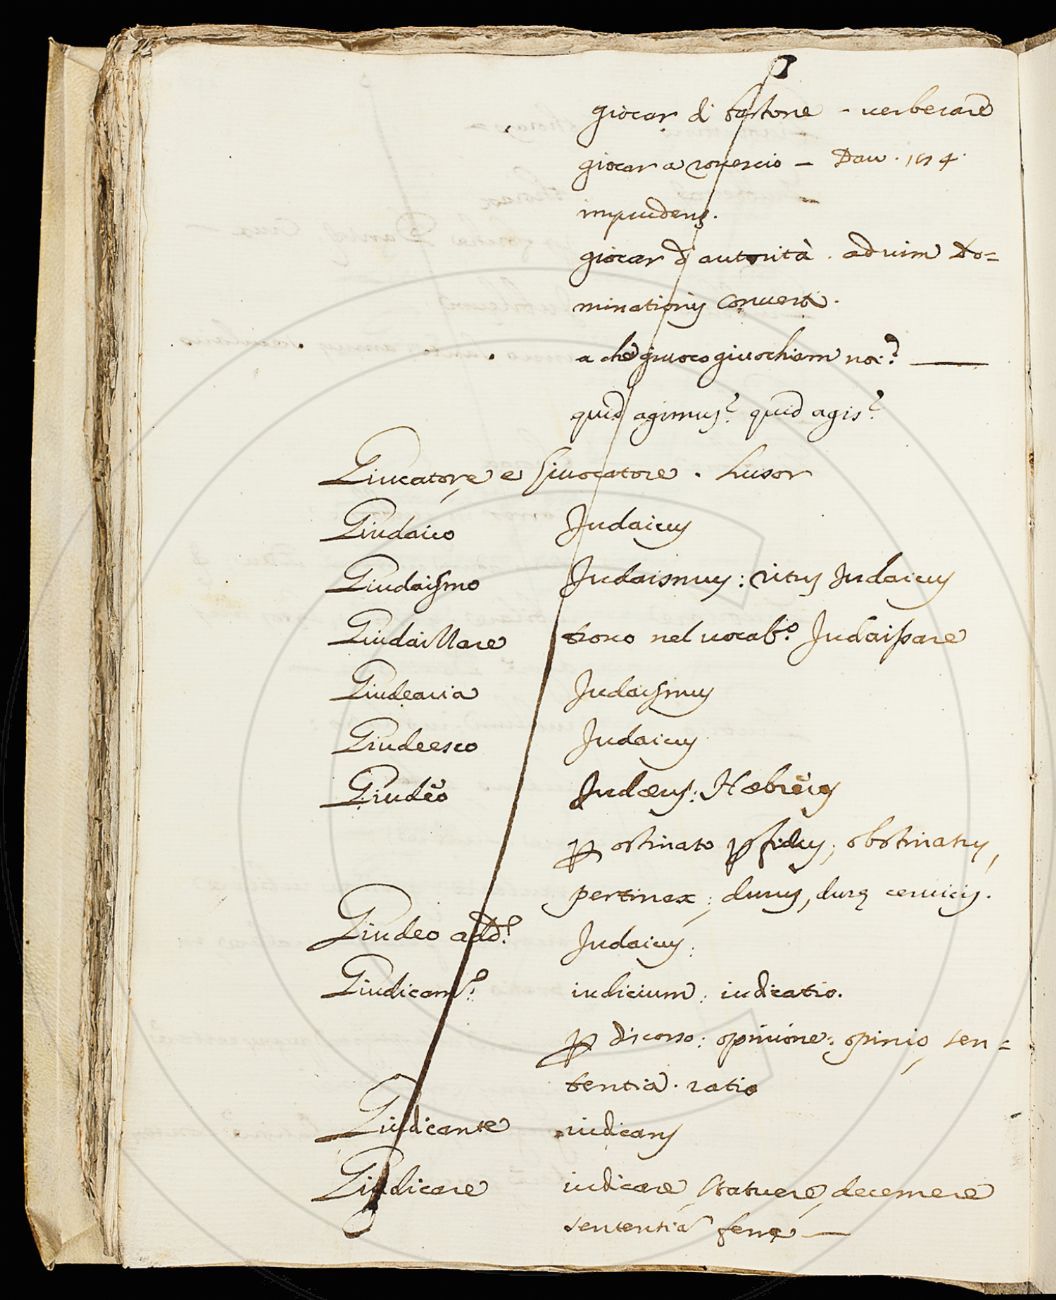 giocar di bastone - verberare
giocar a rovescio - Dav.
imprudens.
giocar d'autorità. ad vim Do=
minationis convera.
a che giuoco giuochiam noi?
quid agimus? quid agis?
Giucatore e Giuocatore. Lusor
Giudaico Judaicus
Giudaismo Judaismus: ritus Judaicus
trovo nel vocab.o
Giudearia Judaismus
Giudeesco Judaicus
Giudeo Judæus: Hæbreus
p ostinato pfidus, obstinatus,
pertinax; durus, duræ cervicis.
Giudeo add.o Judaicus:
Giudicam.o iudicium: iudicatio.
p discorso: opinione: opinio, sen=
tentia. ratio
Giudicante iudicans
Giudicare iudicare, statuere, decernere
sententiã ferre